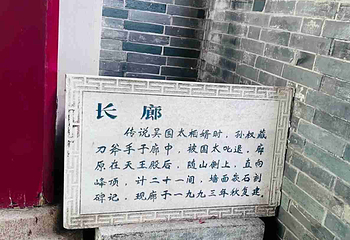 长廊
传说吴国太相婿时，孙权藏
刀斧手于廊中，被国太叱退，廊
原在天王殿后，随山倒上，直向
峰顶，计二十一间，墙面嵌石刻
碑记，现廊于一九九三年秋复建。